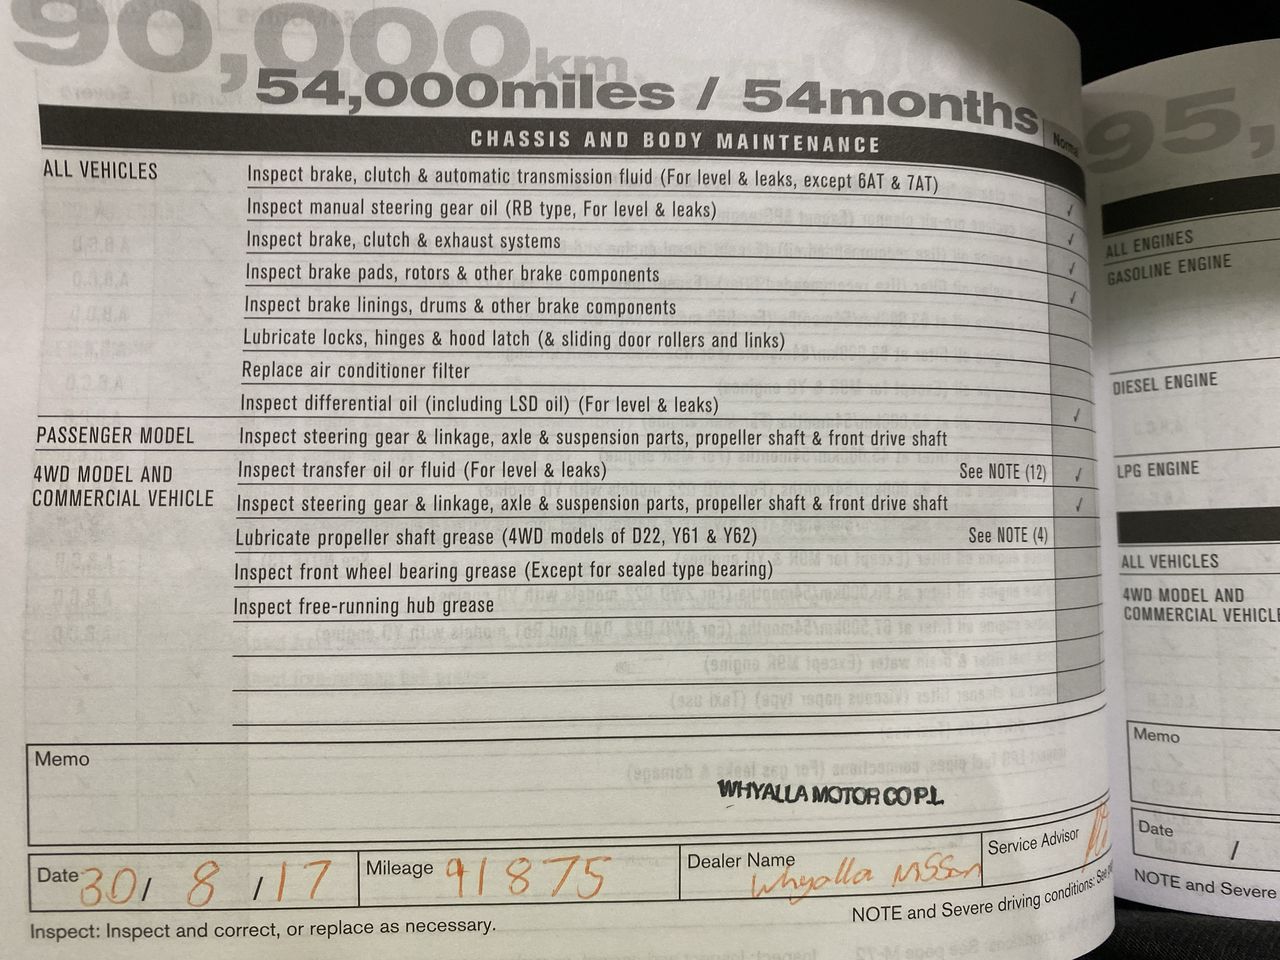 90,000km
54,000miles / 54months
CHASSIS AND BODY MAINTENANCE
ALL VEHICLES
Inspect brake, clutch & automatic transmission fluid (For level & leaks, except 6AT & 7AT)
Inspect manual steering gear oil (RB type, For level & leaks) ✓
Inspect brake, clutch & exhaust systems ✓
Inspect brake pads, rotors & other brake components ✓
Inspect brake linings, drums & other brake components ✓
Lubricate locks, hinges & hood latch (& sliding door rollers and links)
Replace air conditioner filter
Inspect differential oil (including LSD oil) (For level & leaks) ✓
PASSENGER MODEL Inspect steering gear & linkage, axle & suspension parts, propeller shaft & front drive shaft
4WD MODEL AND
COMMERCIAL VEHICLE
Inspect transfer oil or fluid (For level & leaks) See NOTE (12) ✓
Inspect steering gear & linkage, axle & suspension parts, propeller shaft & front drive shaft ✓
Lubricate propeller shaft grease (4WD models of D22, Y61 & Y62) See NOTE (4)
Inspect front wheel bearing grease (Except for sealed type bearing)
Inspect free-running hub grease
Memo
WHYALLA MOTOR CO P.L
Date 30/ 8 /17
Mileage 91875
Dealer Name Whyalla Nissan
Service Advisor
Inspect: Inspect and correct, or replace as necessary.
NOTE and Severe driving conditions: See
95,
ALL ENGINES
GASOLINE ENGINE
DIESEL ENGINE
LPG ENGINE
ALL VEHICLES
4WD MODEL AND
COMMERCIAL VEHICLE
Memo
Date /
NOTE and Severe